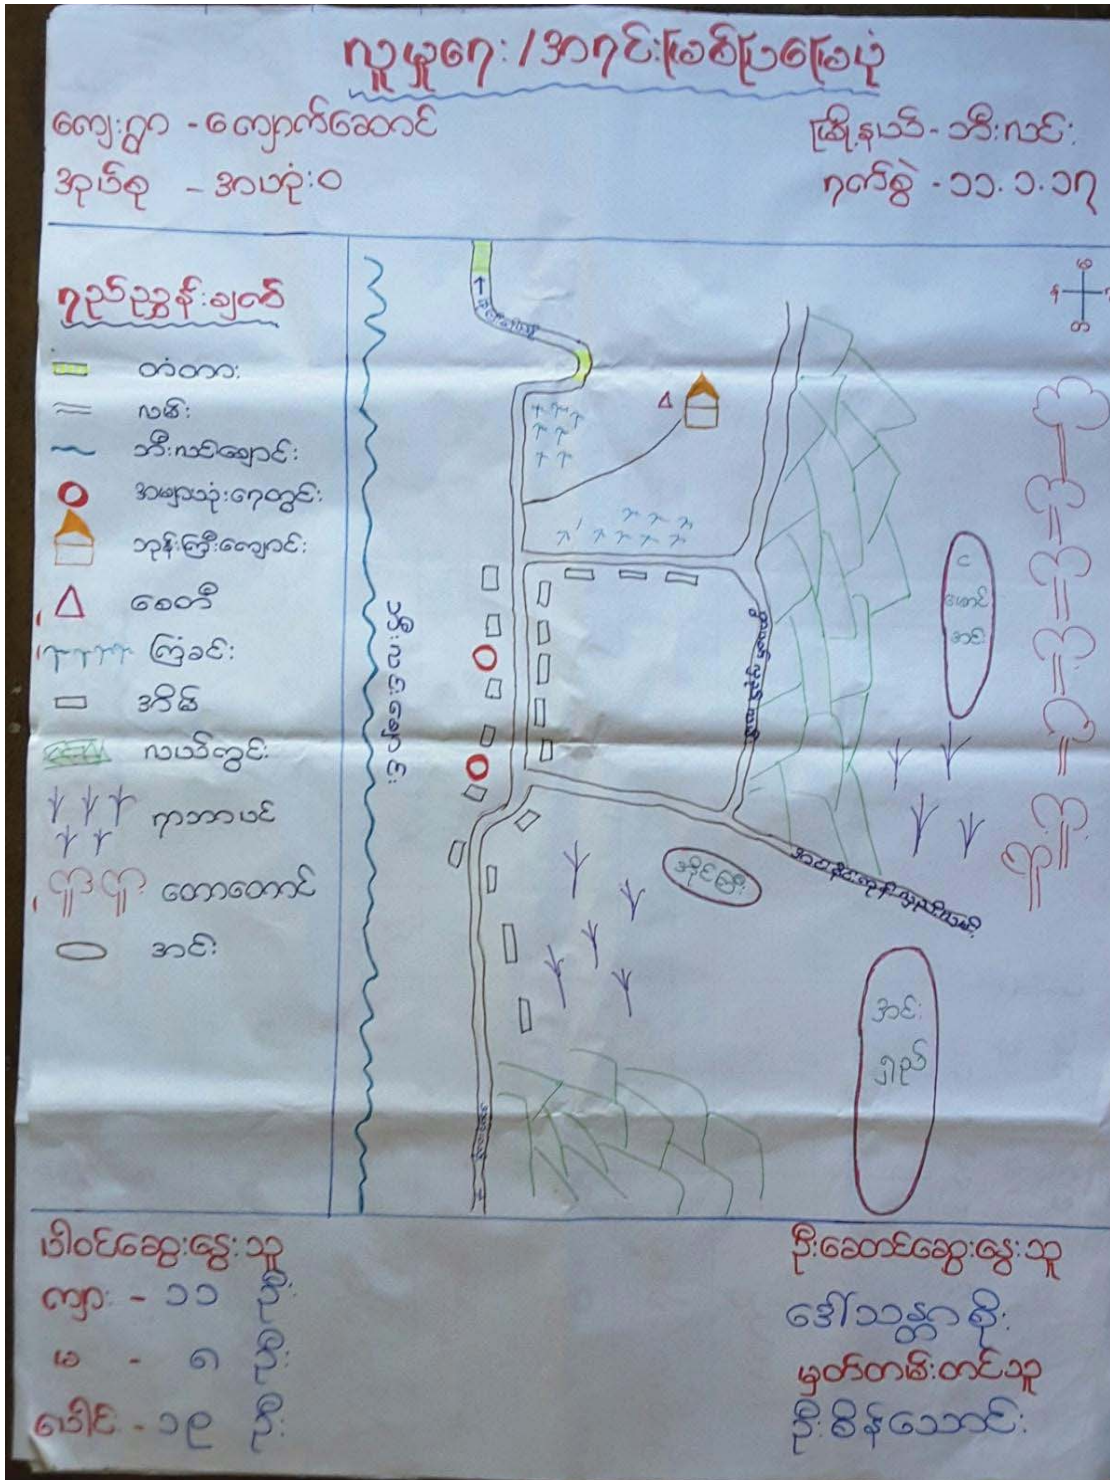 လူမှုရေး/အရင်းမြစ်ပြမြေပုံ
ကျေးရွာ - ကျောက်ဆောင်
မြို့နယ် - ဘီးလင်း
အုပ်စု - အဟုံးဝ
ရက်စွဲ - ၁၁.၁.၁၇
ရည်ညွှန်းချက်
တံတား
လမ်း
ဘီးလင်းချောင်း
အများသုံးရေတွင်း
ဘုန်းကြီးကျောင်း
စေတီ
ကြံခင်း
အိမ်
လယ်ကွင်း
ရာဘာပင်
တောတောင်
အင်း
မ
န
တ
ဘီးလင်းချောင်း
င
မောင်
အင်း
အိုင်ကြီး
အင်း
ရှည်
ပါဝင်ဆွေးနွေးသူ
ကျား - ၁၁ ဦး
မ - ၈ ဦး
ပေါင်း - ၁၉ ဦး
ဦးဆောင်ဆွေးနွေးသူ
ဒေါ်သန္တာစိုး
မှတ်တမ်းတင်သူ
ဦးစိန်သောင်း